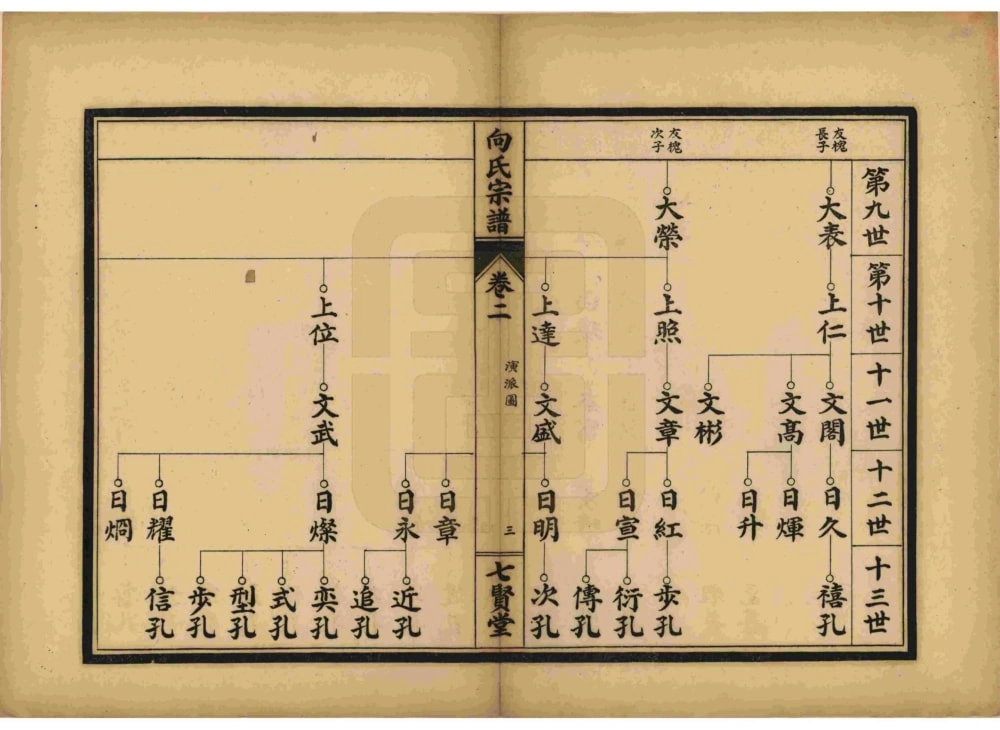 第九世
第十世
十一世
十二世
十三世
友槐
長子
大表
上仁
文閣
文高
文彬
日久
日煇
日升
禧孔
友槐
次子
大榮
上照
文章
日紅
日宣
步孔
衍孔
傳孔
上達
文盛
日明
次孔
向氏宗譜
卷二
演派圖
三
七賢堂
日章
日永
近孔
追孔
上位
文武
日燦
日耀
日烱
奕孔
式孔
型孔
步孔
信孔